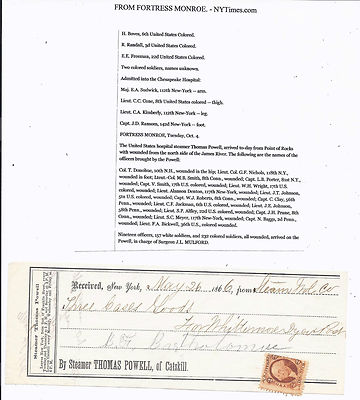 FROM FORTRESS MONROE. - NYTimes.com
H. Boves, 6th United States Colored.
R. Randall, 5d United States Colored.
E.E. Freeman, 22d United States Colored.
Two colored soldiers, names unknown.
Admitted into the Chesapeake Hospital:
Maj. E.A. Ludwick, 112th New-York -- arm.
Lieut. C.C. Gone, 8th United States colored -- thigh.
Lieut. C.A. Kimberly, 112th New-York -- leg.
Capt. J.D. Ransom, 142d New-York -- foot.
FORTRESS MONROE, Tuesday, Oct. 4.
The United hospital steamer Thomas Powell, arrived to-day from Point of Rocks
with wounded from the north side of the James River. The following are the names of the
officers brought by the Powell:
Col. T. Donohoe, 10th N.H., wounded in the hip; Lieut. Col. G.F. Nichols, 118th N.Y.,
wounded in foot; Lieut.-Col. M.B. Smith, 8th Conn., wounded; Capt. L.B. Porter, 81st N.Y.,
wounded; Capt. V. Smith, 17th U.S. colored, wounded; Lieut. W.H. Wright, 17th U.S.
colored, wounded; Lieut. Alanson Denton, 117th New-York, wounded; Lieut. J.T. Johnson,
5th U.S. colored, wounded; Capt. W.J. Roberts, 8th Conn., wounded; Capt. C. Clay, 56th
Penn., wounded; Lieut. C.F. Jackaway, 6th U.S. colored, wounded; Lieut. J.E. Johnson,
58th Penn., wounded; Lieut. S.F. Alfley, 22d U.S. colored, wounded; Capt. J.H. Pease, 8th
Conn., wounded; Lieut. S.C. Meyer, 117th New-York, wounded; Capt. N. Baggs, 2d Penn.,
wounded; Lieut. F.A. Bickwell, 36th U.S., colored wounded.
Nineteen officers, 157 white soldiers, and 232 colored soldiers, all wounded, arrived on the
Powell, in charge of Surgeon J.L. MULFORD.
Steamer Thomas Powell
Received, New York, May 26 1866, from Steam
Three Cases Goods
By Steamer THOMAS POWELL, of Catskill.